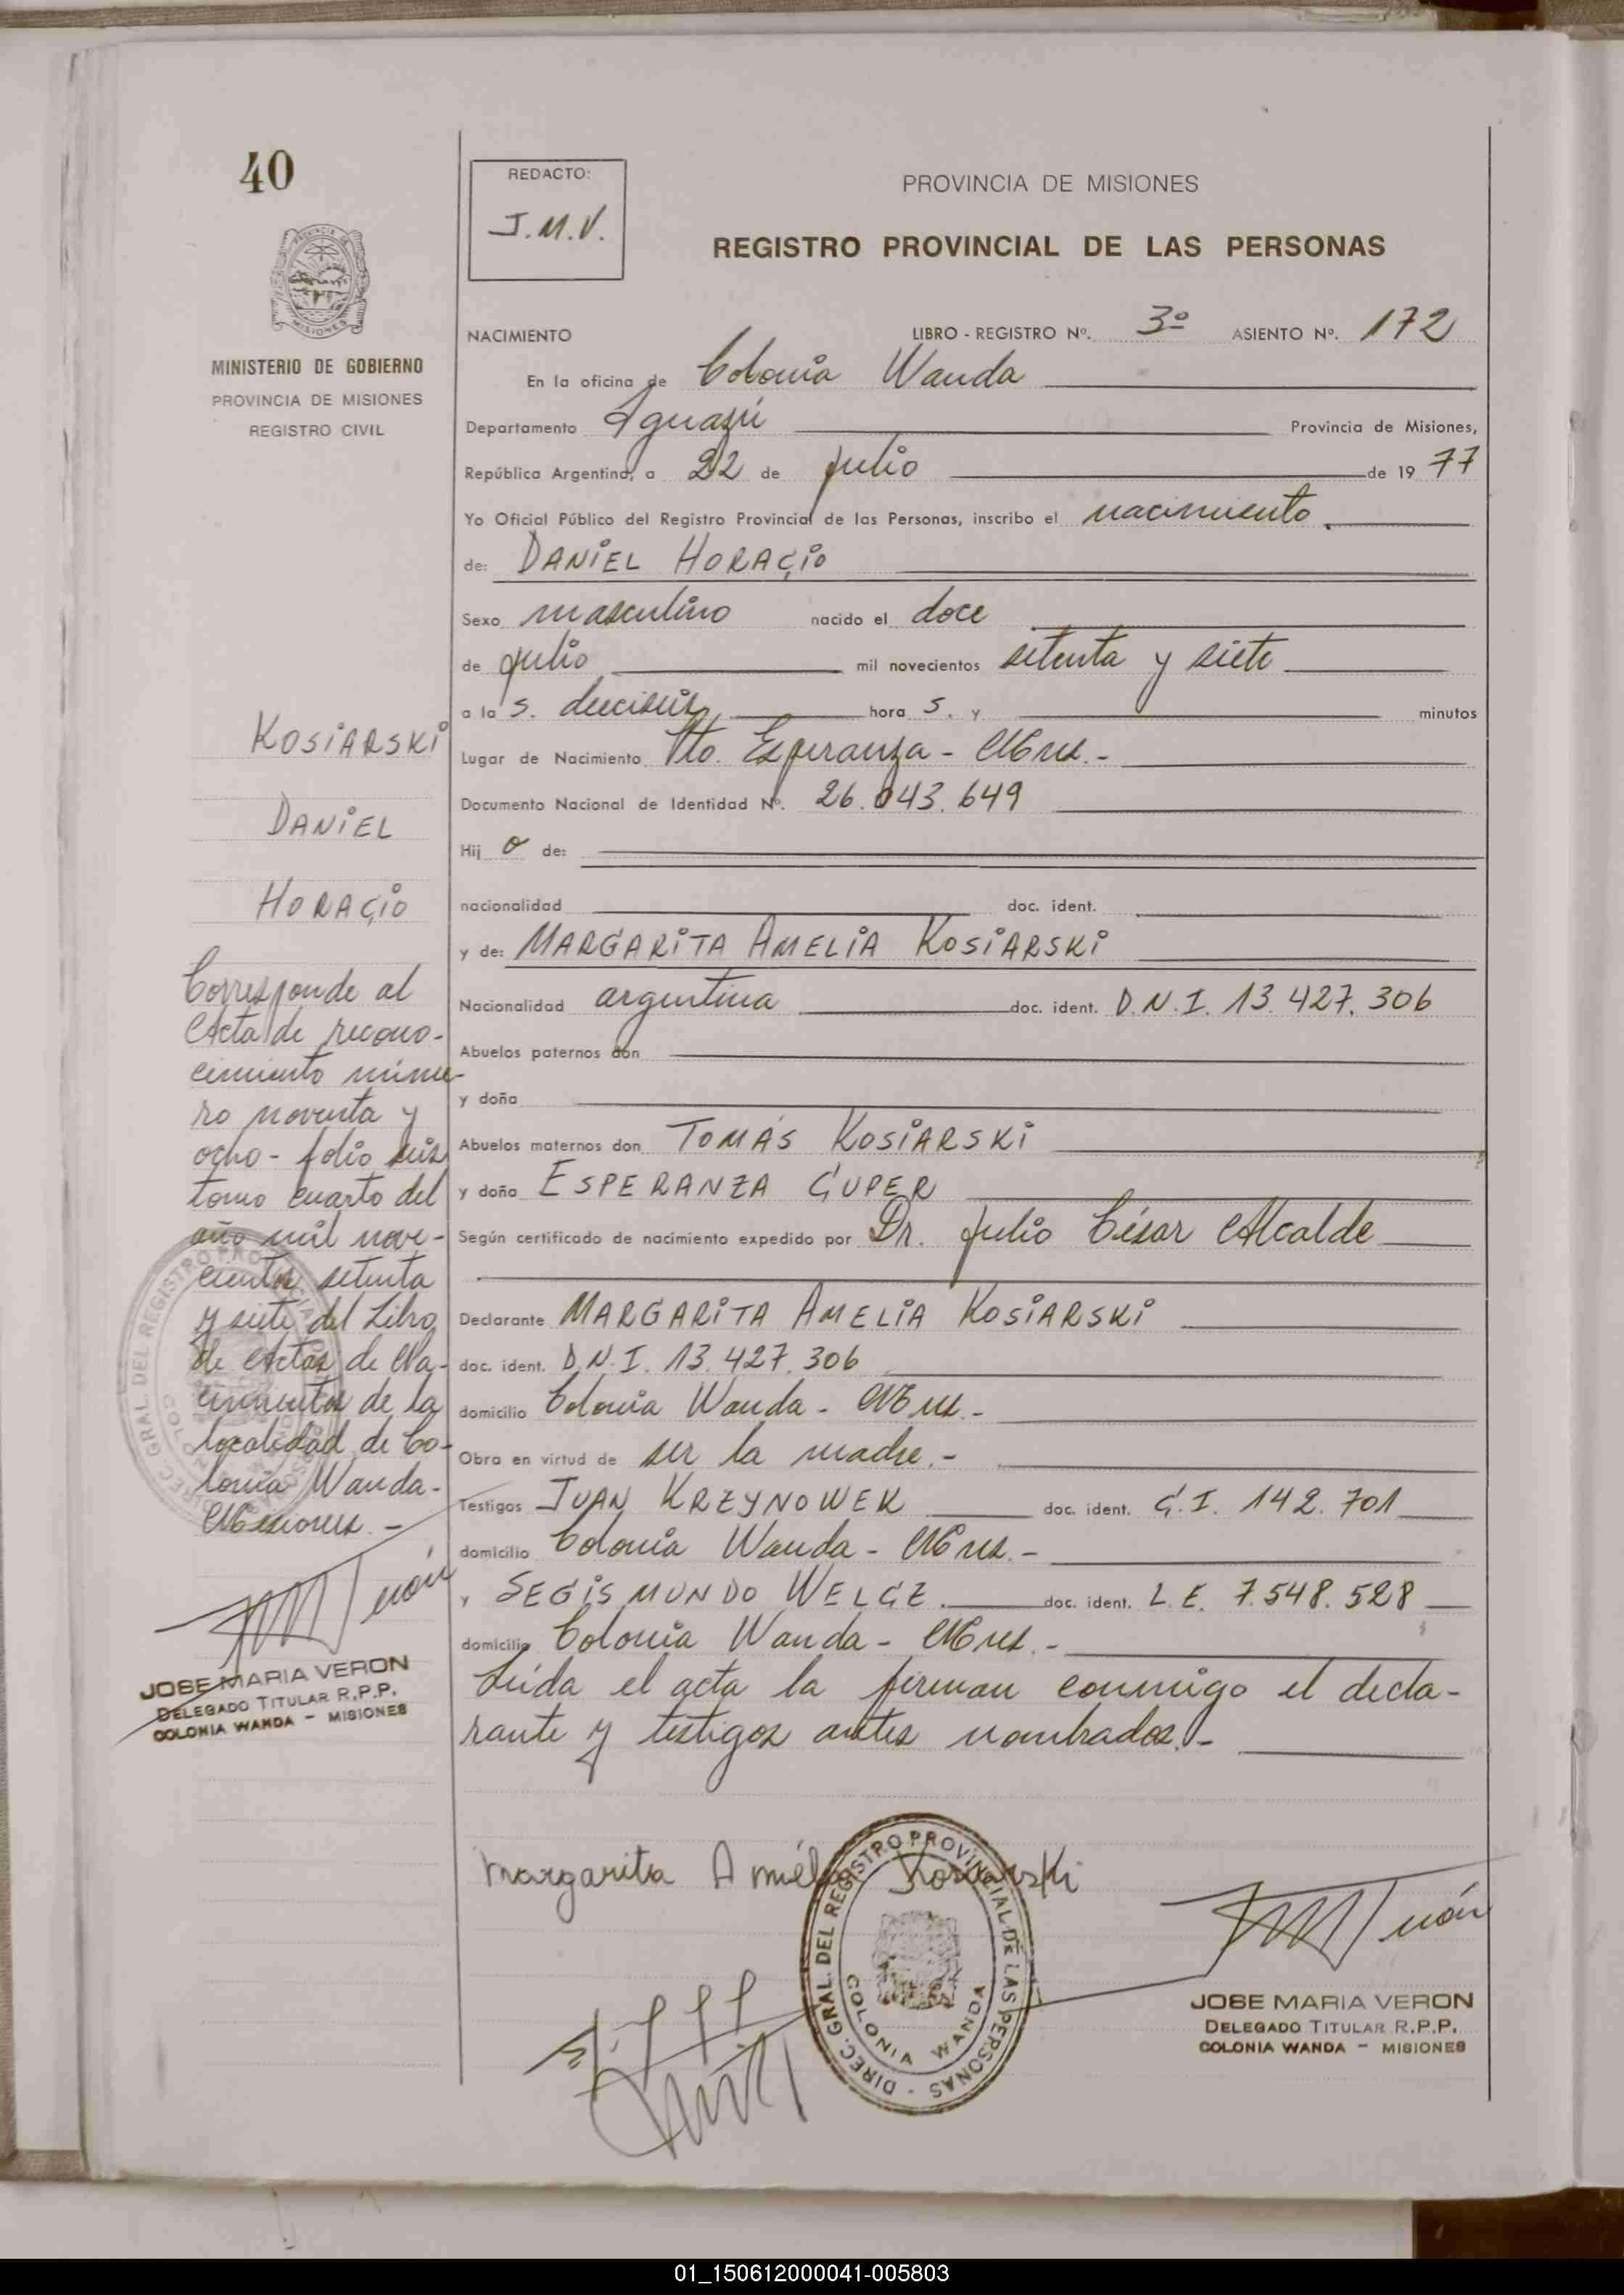 40
MINISTERIO DE GOBIERNO
PROVINCIA DE MISIONES
REGISTRO CIVIL
REDACTO:
J.M.V.
PROVINCIA DE MISIONES
REGISTRO PROVINCIAL DE LAS PERSONAS
NACIMIENTO LIBRO - REGISTRO Nº. 3º ASIENTO Nº. 172
En la oficina de Colonia Wanda
Departamento Iguazú Provincia de Misiones,
República Argentina, a 22 de julio de 19 77
Yo Oficial Público del Registro Provincial de las Personas, inscribo el nacimiento.
de: DANIEL HORACIO
Sexo masculino nacido el doce
de julio mil novecientos setenta y siete
a la s. dieciseis hora s. y minutos
Lugar de Nacimiento Pto. Esperanza - Mnes.-
Documento Nacional de Identidad Nº. 26.043.649
Hij o de:
nacionalidad doc. ident.
y de: MARGARITA AMELIA KOSIARSKI
Nacionalidad argentina doc. ident. D.N.I. 13.427.306
Abuelos paternos don
y doña
Abuelos maternos don TOMÁS KOSIARSKI
y doña ESPERANZA CUPER
Según certificado de nacimiento expedido por Dr. Julio César Alcalde
Declarante MARGARITA AMELIA KOSIARSKI
doc. ident. D.N.I. 13.427.306
domicilio Colonia Wanda - Mnes.-
Obra en virtud de ser la madre.-
Testigos JUAN KRZYNOWEK doc. ident. C.I. 142.701
domicilio Colonia Wanda - Mnes.-
y SEGISMUNDO WELCZ. doc. ident. L.E. 7.548.528
domicilio Colonia Wanda - Mnes.-
Leída el acta la firman conmigo el decla-
rante y testigos antes nombrados.-
KOSIARSKI
DANIEL
HORACIO
Corresponde al
Acta de recono-
cimiento núme-
ro noventa y
ocho - folio seis
tomo cuarto del
año mil nove-
cientos setenta
y siete del Libro
de Actas de Na-
cimientos de la
localidad de Co-
lonia Wanda-
Misiones.-
JOSE MARIA VERON
DELEGADO TITULAR R.P.P.
COLONIA WANDA - MISIONES
Margarita Amélia Kosiarski
DIREC. GRAL. DEL REGISTRO PROVINCIAL DE LAS PERSONAS -
COLONIA WANDA
JOSE MARIA VERON
DELEGADO TITULAR R.P.P.
COLONIA WANDA - MISIONES
01_150612000041-005803